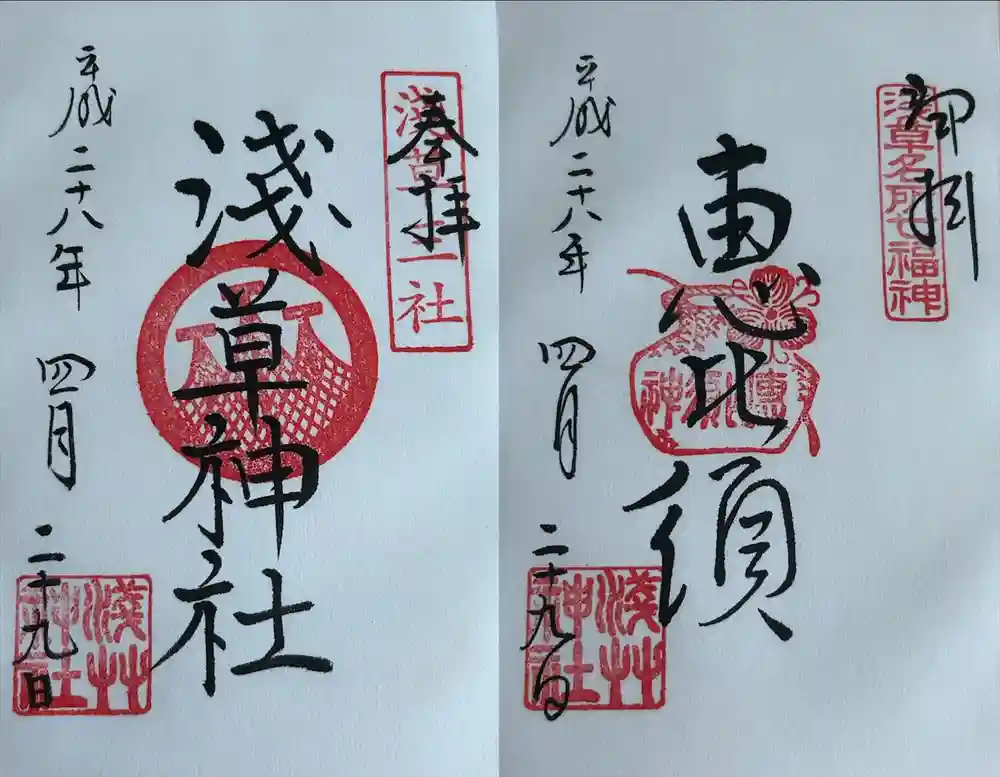 奉拝
淺草三社
淺草神社
平成二十八年 四月 二十九日
淺草神社
御掛
浅草名所七福神
恵比須
恵比須神
平成二十八年 四月 二十九日
淺草神社